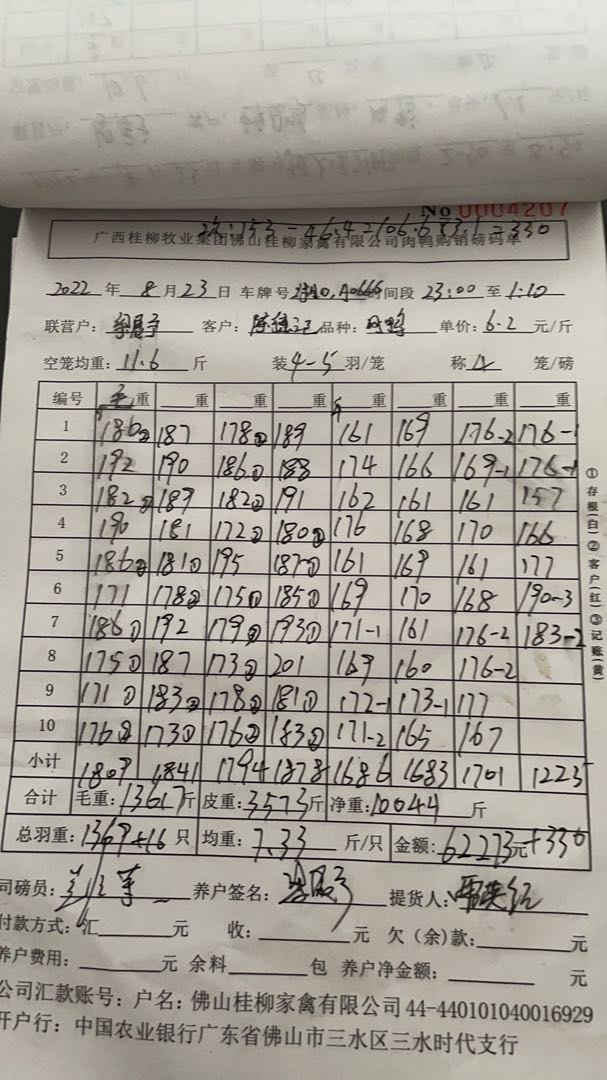 No 0004207
153-46.4=106.6×3.1=330
广西桂柳牧业集团佛山桂柳家禽有限公司肉鸭购销磅码单
2022 年 8 月 23 日 车牌号 时间段 23:00 至 1:10
联营户: 客户: 品种: 肉鸭 单价: 6.2 元/斤
空笼均重: 11.6 斤 装 4-5 羽/笼 称 4 笼/磅
编号 毛重 重 重 重 重 重 重 重
1 186② 187 178② 189 161 169 176-2 176-1
2 192 190 186① 188 174 166 169-1 176-1
3 182② 189 182② 191 162 161 161 157
4 190 181 172② 180② 176 168 170 166
5 186② 181① 195 187① 161 169 161 177
6 171 178② 175① 185① 169 170 168 190-3
7 186① 192 179② 193① 171-1 161 176-2 183-2
8 175① 187 173② 201 169 160 176-2
9 171① 183② 178② 181① 172-1 173-1 177
10 176② 173① 176② 183② 171-2 165 167
小计 1809 1841 1794 1878 1686 1683 1701 1225
合计 毛重: 13617斤 皮重: 3573斤 净重: 10044 斤
总羽重: 1369+16 只 均重: 7.33 斤/只 金额: 62273元+330
司磅员: 养户签名: 提货人:
付款方式: 汇 元 收: 元 欠(余)款: 元
养户费用: 元 余料 包 养户净金额: 元
公司汇款账号: 户名: 佛山桂柳家禽有限公司 44-440101040016929
开户行: 中国农业银行广东省佛山市三水区三水时代支行
①存根(白)②客户(红)③记账(黄)